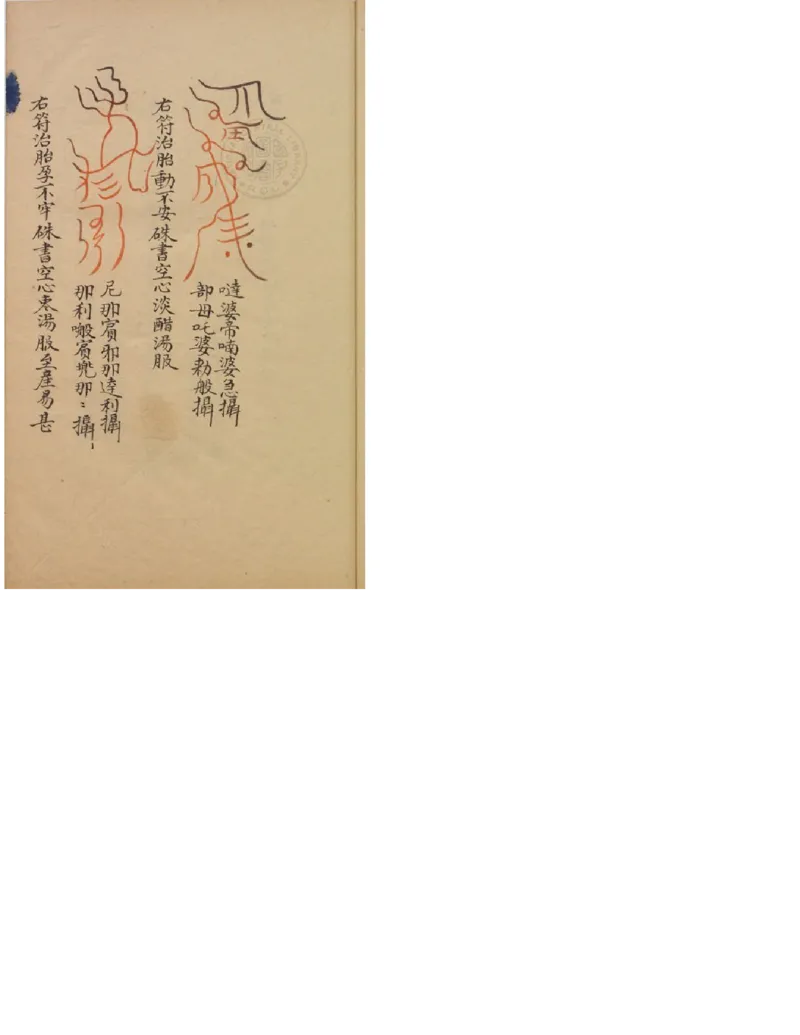 噠婆帝喃婆急攝
部母吒婆勑般攝
右符治胎動不安硃書空心淡醋湯服
尼那賓邪那達利攝
那利啣賓兜那〻攝〻
右符治胎孕不牢硃書空心枣湯服至產易甚